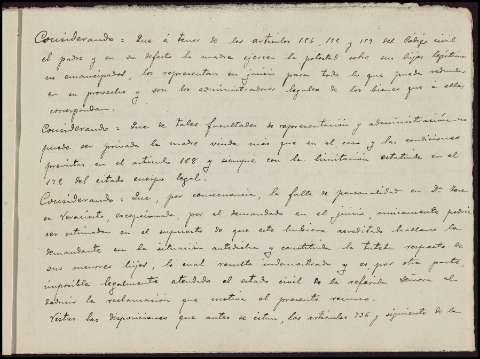 Considerando = Que á tenor de los artículos 155, 154 y 159 del Código civil
el padre y en su defecto la madre ejercen la potestad sobre sus hijos legítimos
no emancipados, los representan en juicio para todo lo que pueda redundar
en su provecho y son los administradores legales de los bienes que á ellos
correspondan.
Considerando = Que de tales facultades de representación y administración no
puede ser privada la madre viuda más que en el caso y las condiciones
previstas en el artículo 168 y siempre con la limitación estatuida en el
172 del citado cuerpo legal.
Considerando = Que, por consecuencia, la falta de personalidad en Dª
excepcionada por el demandado en el juicio, unicamente podría
ser estimada en el supuesto de que este hubiera acreditado hallarse la
demandante en la situación antedicha y constituida la tutela respecto de
sus menores hijos, lo cual resulta indemostrado y es por otra parte
imposible legalmente atendido el estado civil de la referida Señora al
deducir la reclamación que motiva el presente recurso.
Vistas las disposiciones que antes se citan, los artículos 736 y siguiente de la